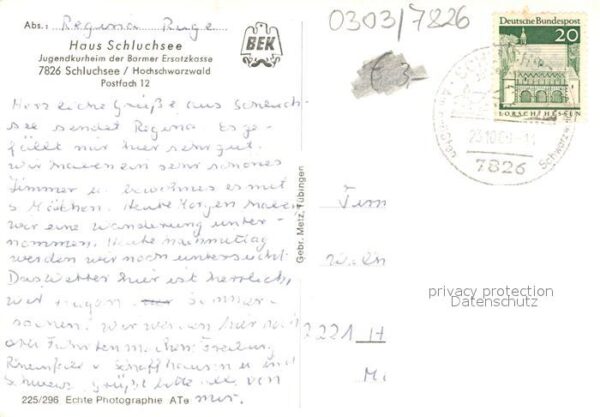 Abs.: Regina Ruge
Haus Schluchsee
Jugendkurheim der Barmer Ersatzkasse
7826 Schluchsee / Hochschwarzwald
Postfach 12
BEK
0303/7826
Deutsche Bundespost
20
LORSCH/HESSEN
7826
Herzliche Grüße aus Schluch-
see sendet Regina. Es ge-
fällt mir hier sehr gut.
Wir haben ein sehr schönes
Zimmer u. bewohnen es mit
5 Mädchen. Heute Morgen haben
wir eine Wanderung unter-
nommen. Heute Nachmittag
werden wir noch untersucht.
Das Wetter hier ist herrlich,
wir tragen Sommer-
sachen. Wir werden hier noch
Freiburg
Rheinfall v. Schaffhausen u. in d.
Schweiz. grüßt bitte alle von
mir.
Gebr. Metz, Tübingen
2221
privacy protection
Datenschutz
225/296 Echte Photographie ATe